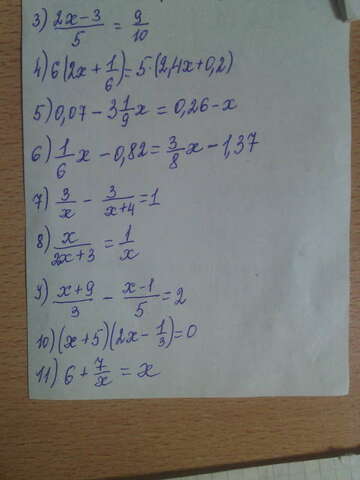 3) (2x-3)/5 = 9/10
4) 6(2x + 1/6) = 5·(2,4x+0,2)
5) 0,07 - 3 1/9 x = 0,26 - x
6) 1/6 x - 0,82 = 3/8 x - 1,37
7) 3/x - 3/(x+4) = 1
8) x/(2x+3) = 1/x
9) (x+9)/3 - (x-1)/5 = 2
10) (x+5)(2x - 1/3) = 0
11) 6 + 7/x = x